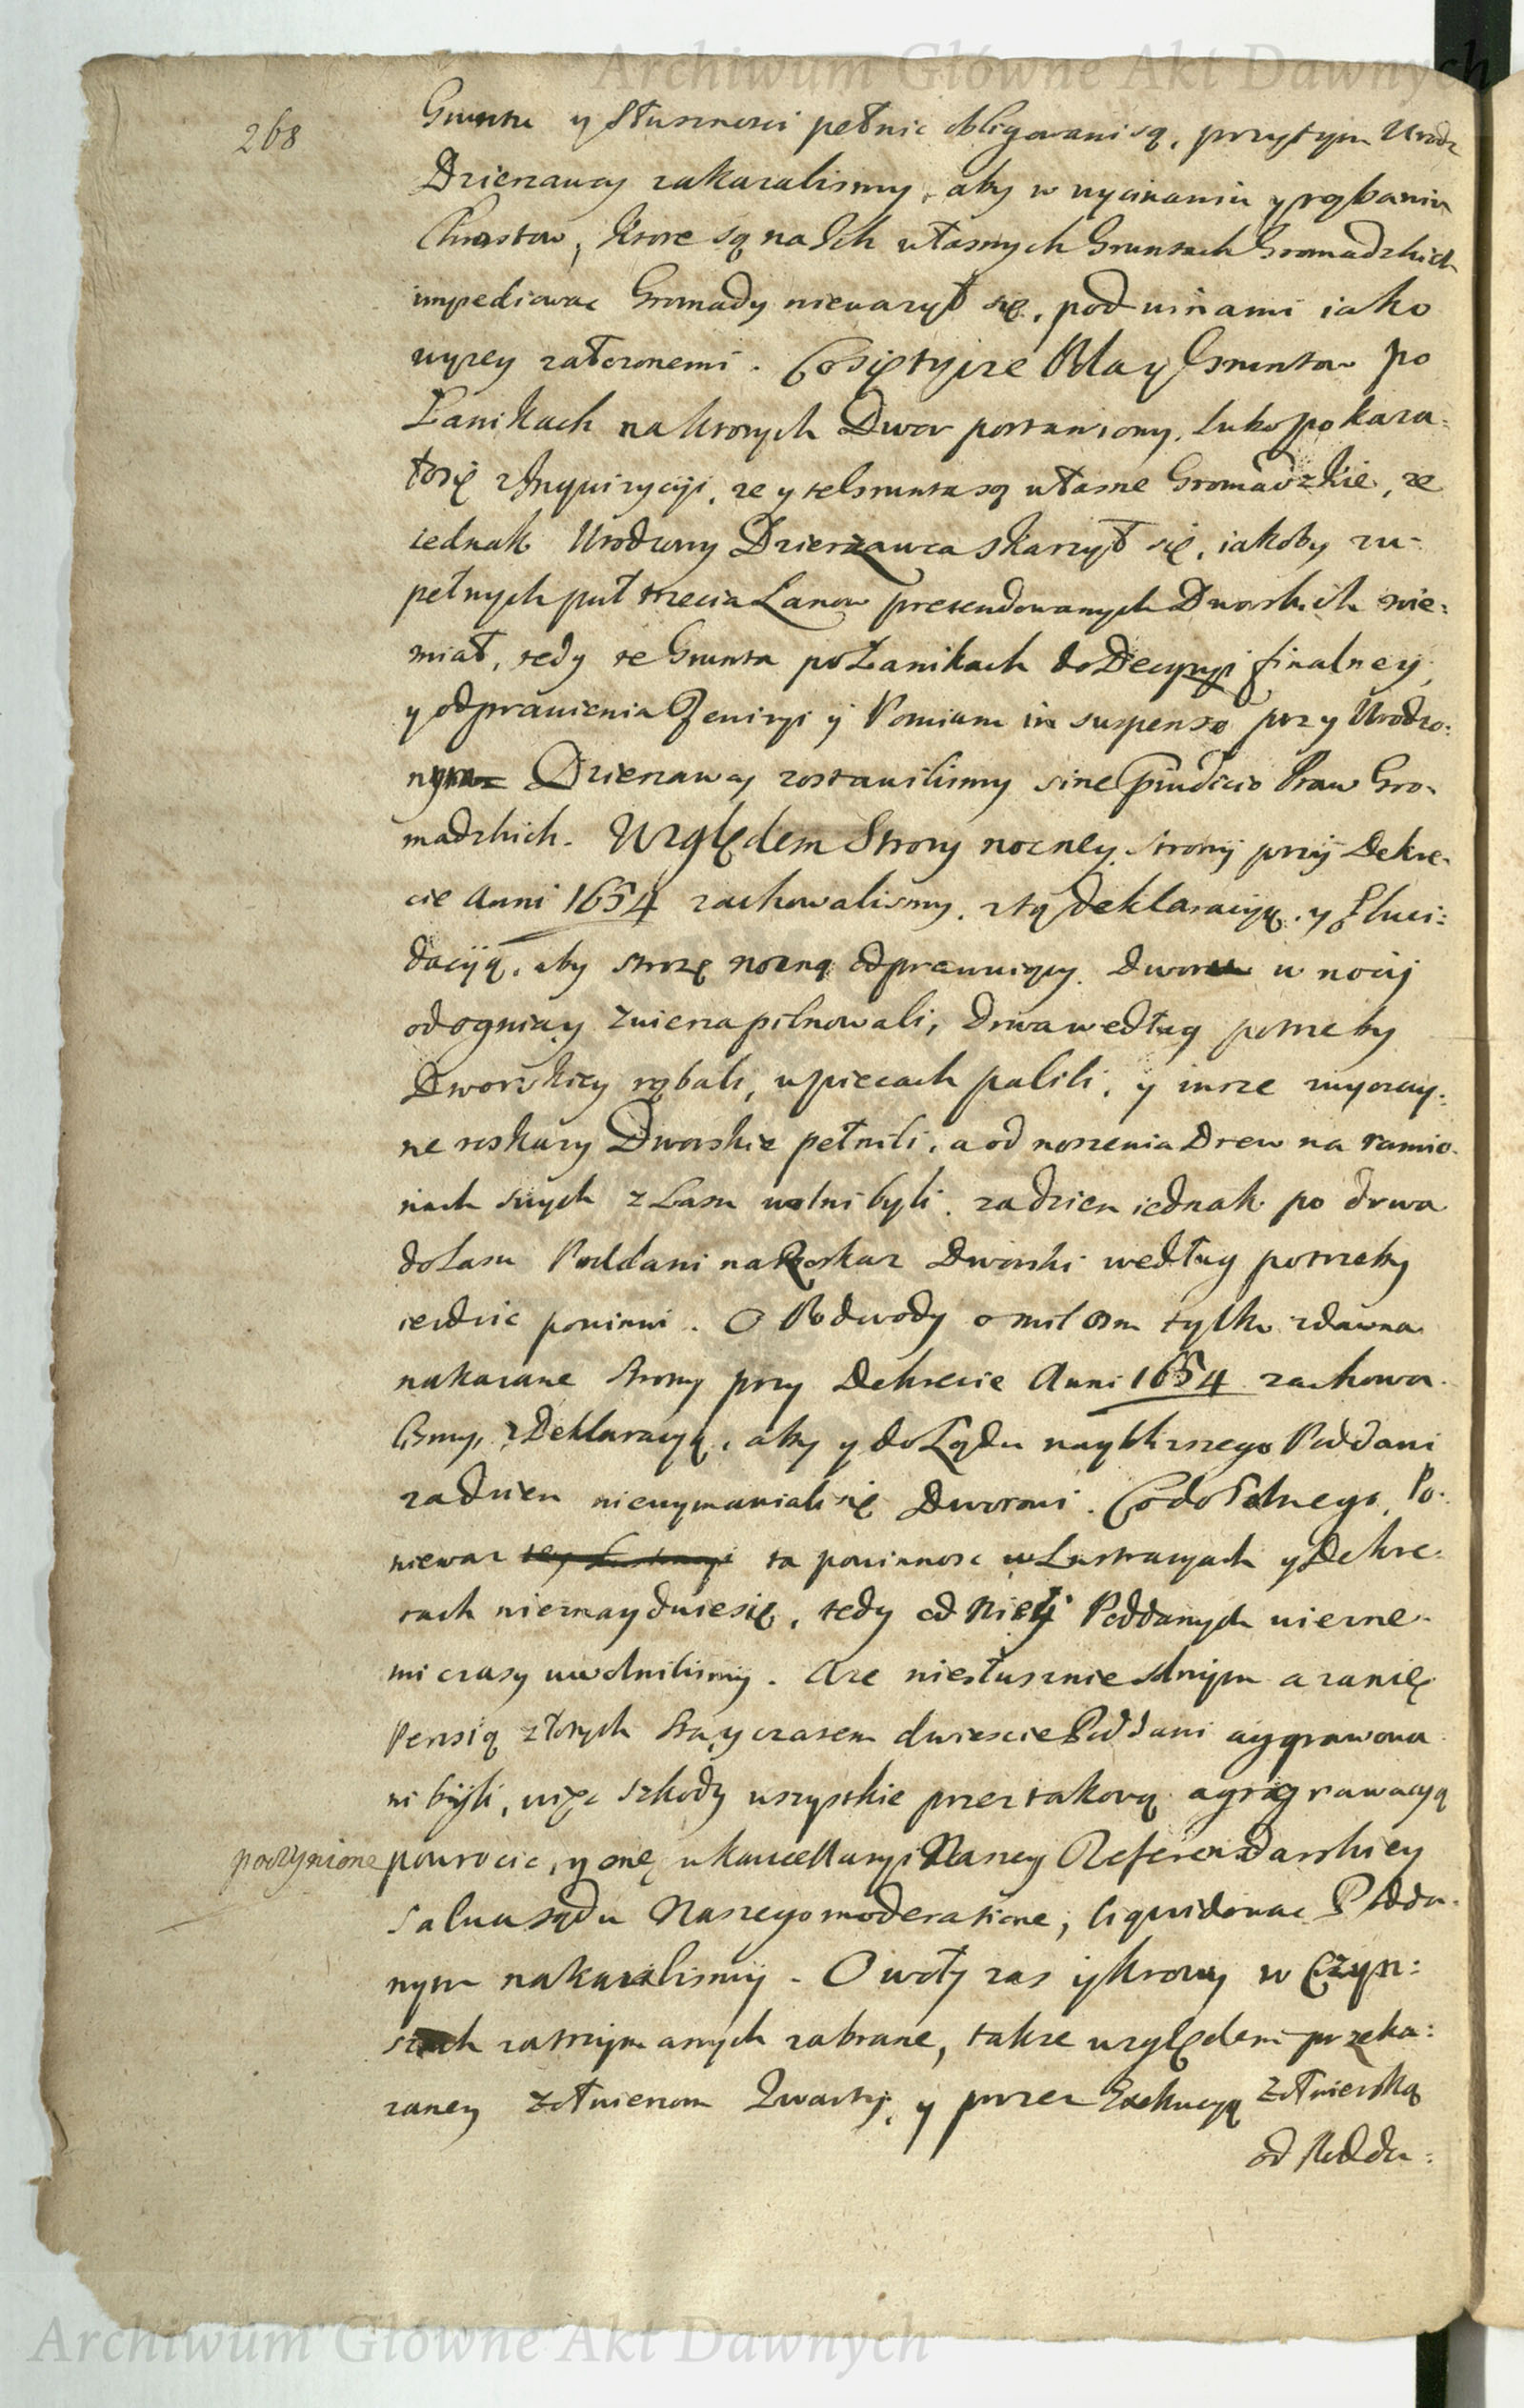 Archiwum Główne Akt Dawnych
268
Gruntu y słusznosci pełnic obligowani są, przytym Urodz
Dzierzawcy zakazalismy, aby w wycinaniu y rąbaniu
Chrostow, ktore są na Ich własnych Gruntach Gromadzkich
impediowac Gromady niewazył się, pod winami iako
wyzey załozonemi. Co się tycze Pola y Gruntow po
Łanikach na ktorych Dwor postawiony, lubo pokaza-
ło się z Inquizycyi, ze y te Grunta są własne Gromadzkie, ze
iednak Urodzony Dzierzawca skarzył się, iakoby zu-
pełnych puł trzecia Łanow pretendowanych Dworskich nie:
miał, tedy te Grunta po Łanikach do Decyzyi finalney,
y odprawienia Rewizyi y Pomiaru in suspenso przy Urodzo:
nym Dzierzawcy zostawilismy sine Praejudicio Praw Gro-
madzkich. Względem Strozy nocney, strony przy Dekre-
cie Anni 1654 zachowalismy, z tą deklaracyą, y Eluci:
dacyją, aby stroze nocną odprawuiący, Dworu w nocy
od ognia, y zwierza pilnowali, drwa według potrzeby
Dworskiey rąbali, w piecach palili, y insze zwyczay:
ne roskazy Dworskie pełnili, a od noszenia Drew na ramio-
nach swych z Lasu wolni byli, za dzien iednak po drwa
do Lasu Poddani na Roskaz Dworski według potrzeby
iezdzic powinni. O Podwody o mil osm tylko zdawna
nakazane strony przy Dekrecie Anni 1654 zachowa-
lismy, z Deklaracyą, aby y do Lądu nayblizszego Poddani
za dzien niewymawiali się Dworowi. Co do Solnego, Po-
niewaz ta powinnosc w Lustracyach y Dekre-
tach nieznayduie się, tedy od niey Poddanych wiecznе-
mi czasy uwolnilismy. A ze niesłusznie solnym a zanię
Pensią złotych sta, y czasem dwiescie Poddani aggrawowa
ni byli, więc szkody wszystkie przez takową aggrawacyą
poczynione powrocic, y onę w kancellaryi Naszey Referendarskiey
salva sądu Naszego moderatione, liquidowac Podda-
nym nakazalismy. O woły zas y krowy w Czyn:
szach zatrzymanych zabrane, takze względem przeka:
zaney zołnierzom Kwarty, y przez Exekucyą zołnierską
od Podda:
Archiwum Główne Akt Dawnych